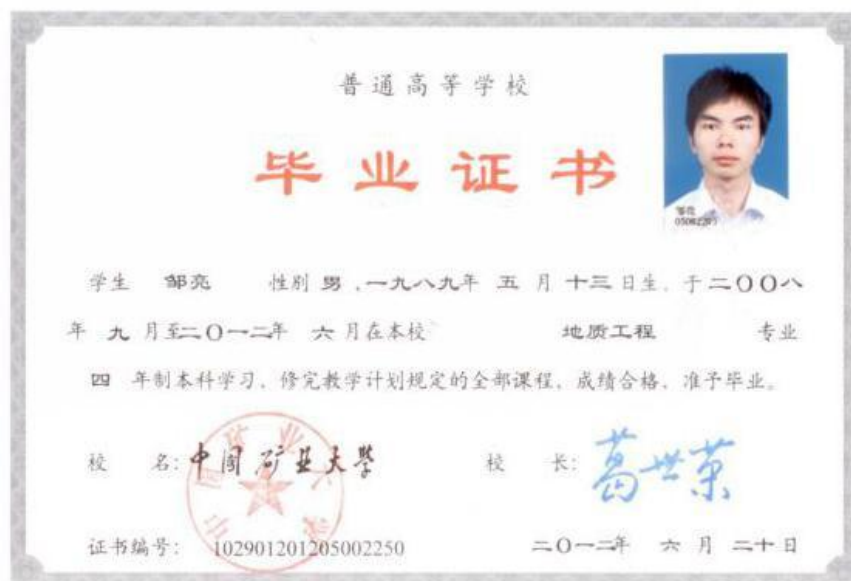 普通高等学校
毕业证书
邹亮
学生 邹亮 性别 男 ,一九八九年 五 月 十三日生, 于二〇〇八
年 九 月至二〇一二年 六 月在本校 地质工程 专业
四 年制本科学习, 修完教学计划规定的全部课程, 成绩合格, 准予毕业。
校 名: 中国矿业大学 校 长: 葛世荣
证书编号: 102901201205002250 二〇一二年 六 月 二十日